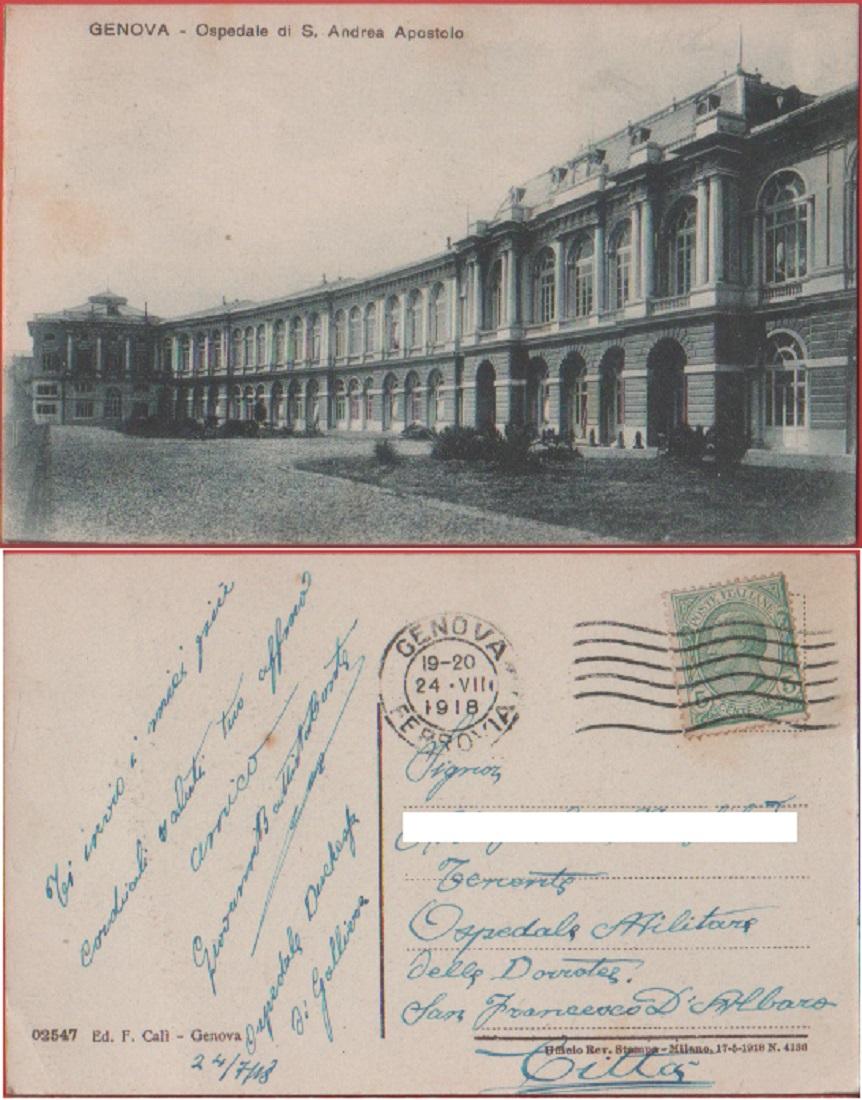 GENOVA - Ospedale di S. Andrea Apostolo
Ti invio i miei più
cordiali saluti tuo affmo
amico
Giovanni Battista Conte
Ospedale Duchessa
di Galliera
24/7/18
02547 Ed. F. Calì - Genova
GENOVA
19-20
24 · VII
1918
FERROVIA
POSTE ITALIANE
5 5
CENTESIMI
Signor
Tenente
Ospedale Militare
delle Dorotee.
San Francesco D'Albaro
Città
Ufficio Rev. Stampa - Milano, 17-5-1918 N. 4136